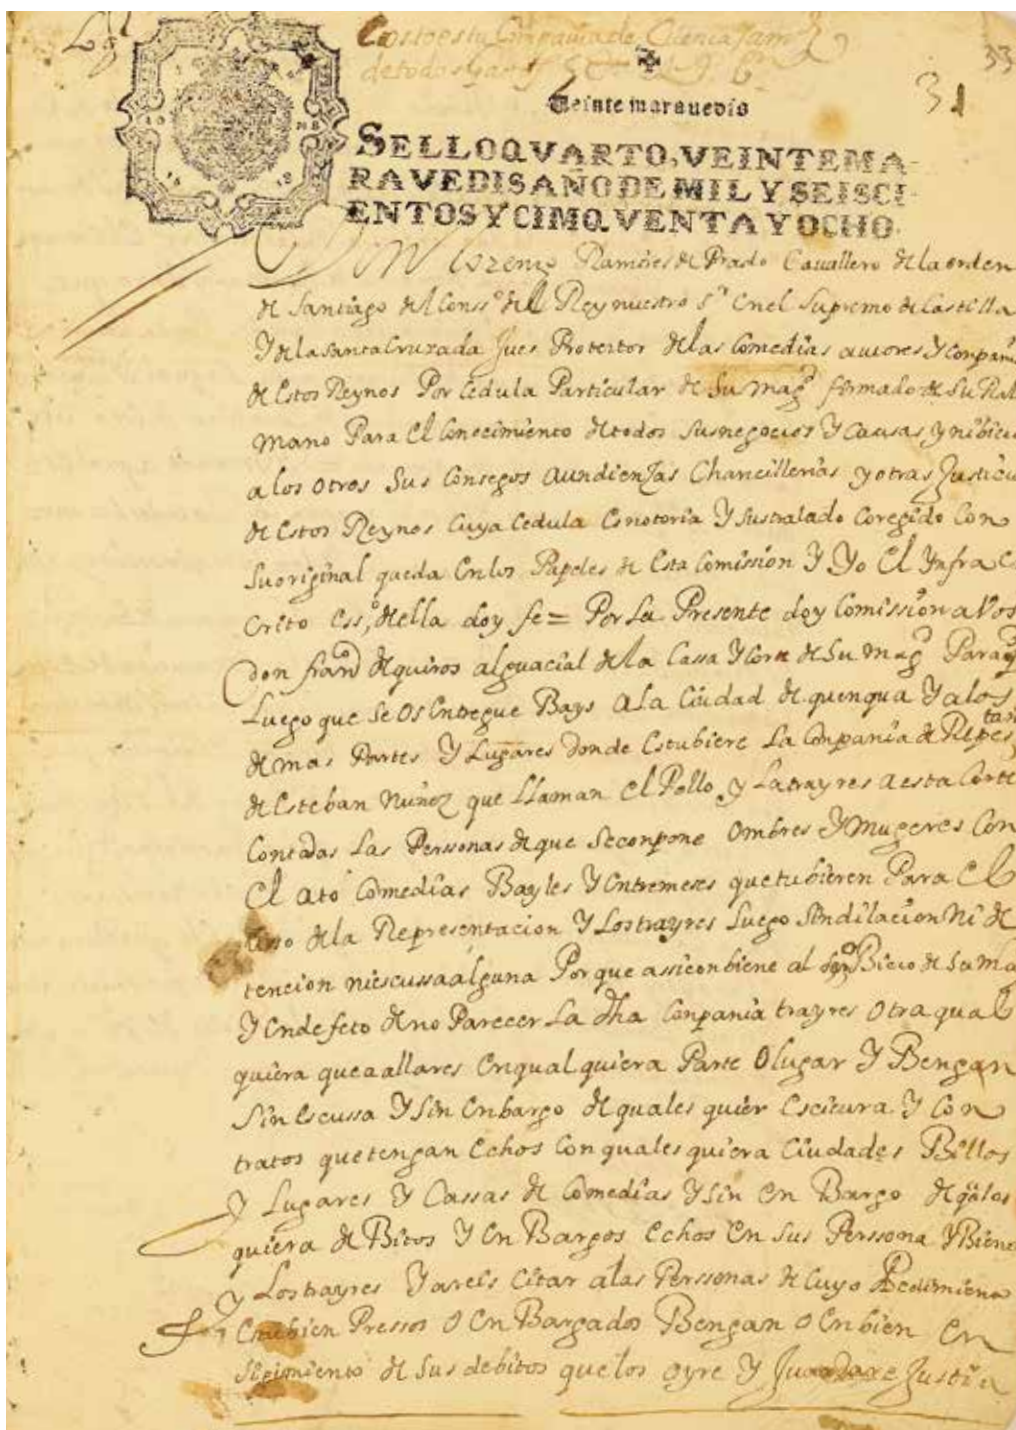 33
31
Veinte marauedis
SELLO QVARTO, VEINTE MA-
RAVEDIS AÑO DE MIL Y SEISCI-
ENTOS Y CIMQVENTA Y OCHO.
Don Lorenço Ramires de Prado Cauallero de la orden
de Santiago del Conss.º del Rey nuestro S.r en el Supremo de Castilla
Y de la Santa Cruzada Jues Protertor de las Comedias autores Y Conpañi
de Estos Reynos Por Cedula Particular de Su Mag.d firmado de Su Ral
mano Para El Conecimiento de todos Sus negocios Y Causas Y nibicio
a los otros Sus Consegos Aundienzas Chancillerias y otras Justicia
de Estos Reynos Cuya Cedula Es notoria Y Su stralado Coregido Con
Su original queda En los Papeles de Esta Comission Y Yo El Ynfra Es
Crito Ess.º della doy fe = Por La Presente doy Comission a Vos
don fran.co de quiros alguacial de la Cassa Y Corte de Su Mag.d Para q
Luego que Se os Entregue Bays a La Ciudad de quenqua Y a los
de mas Partes Y Lugares donde Estubiere La Conpania de Repres
tan
de Esteban Nuñez que Llaman El Pollo y La trayres a esta Corte
Contadas Las Perssonas de que Se conpone Ombres Y Mugeres Con
El ato Comedias Bayles Y Entremeses que tubieren Para El
Usso de la Representacion Y Los trayres Luego Sin dilacion Ni de
tencion ni escussa alguna Por que assi conbiene al Serº Bicio de Su Ma
Y En defeto de no Parecer La dha Conpania trayres Otra qual
quiera que a allares En qual quiera Parte O lugar Y Bengan
Sin Escussa Y Sin Enbargo de quales quier Escitura Y Con
tratos que tengan Echos Con quales quiera Ciudades Billas
Y Lugares Y Cassas de Comedias Y Sin En Bargo de qales
quiera de Bitos Y En Bargos Echos En Sus Perssona Y Biene
Y Los trayres Y areis Citar a las Perssonas de Cuyo Pedimiento
Estubien Pressos O En Bargados Bengan O Enbien En
de Sus debitos que los oyre Y Justicia